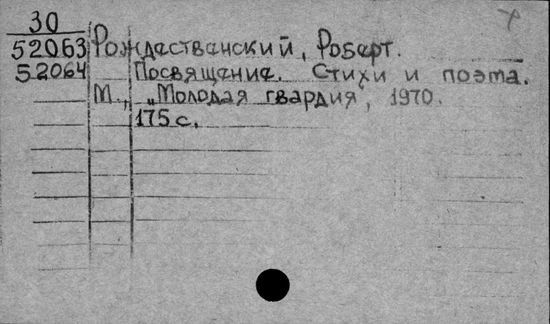 30
52063 Рождественский, Роберт.
52064 Посвящение. Стихи и поэма.
М., „Молодая гвардия, 1970.
175 с.